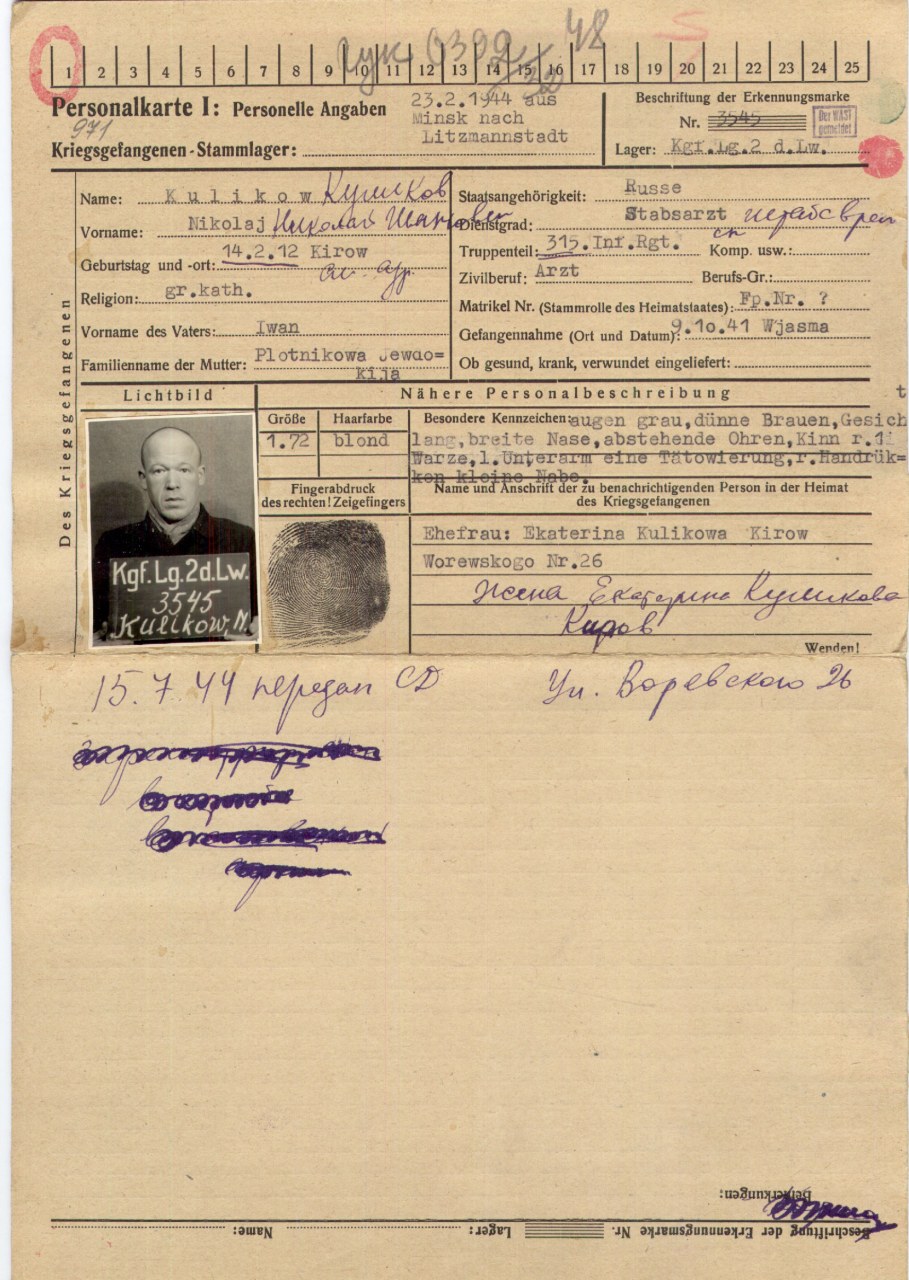 1 2 3 4 5 6 7 8 9 10 11 12 13 14 15 16 17 18 19 20 21 22 23 24 25
Personalkarte I: Personelle Angaben
23.2.1944 aus
Minsk nach
Litzmannstadt
971
Kriegsgefangenen-Stammlager:
Beschriftung der Erkennungsmarke
Nr. 3545
Der WASt
gemeldet
Lager: Kgf.Lg.2 d.Lw.
Des Kriegsgefangenen
Name: Kulikow Куликов
Vorname: Nikolaj Николай Иванович
Geburtstag und -ort: 14.2.12 Kirow
Religion: gr.kath.
Vorname des Vaters: Iwan
Familienname der Mutter: Plotnikowa Jewdo=
kija
Staatsangehörigkeit: Russe
Dienstgrad: Stabsarzt штабс врач
Truppenteil: 315.Inf.Rgt. Komp. usw.:
Zivilberuf: Arzt Berufs-Gr.:
Matrikel Nr. (Stammrolle des Heimatstaates): Fp.Nr. ?
Gefangennahme (Ort und Datum): 9.10.41 Wjasma
Ob gesund, krank, verwundet eingeliefert:
Lichtbild
Nähere Personalbeschreibung
Größe Haarfarbe
1.72 blond
Besondere Kennzeichen: augen grau,dünne Brauen,Gesicht
lang,breite Nase,abstehende Ohren,Kinn r.
Warze,l.Unterarm eine Tätowierung,r.Handrük=
ken kleine Nabe.
Fingerabdruck
des rechten! Zeigefingers
Name und Anschrift der zu benachrichtigenden Person in der Heimat
des Kriegsgefangenen
Ehefrau: Ekaterina Kulikowa Kirow
Worewskogo Nr.26
Жена Екатерина Куликова
Киров
Kgf.Lg.2d.Lw.
3545
Kulikow,N.
Wenden!
15.7.44 передан СД
Ул. Воревского 26
Bemerkungen:
Beschriftung der Erkennungsmarke Nr. Lager: Name: